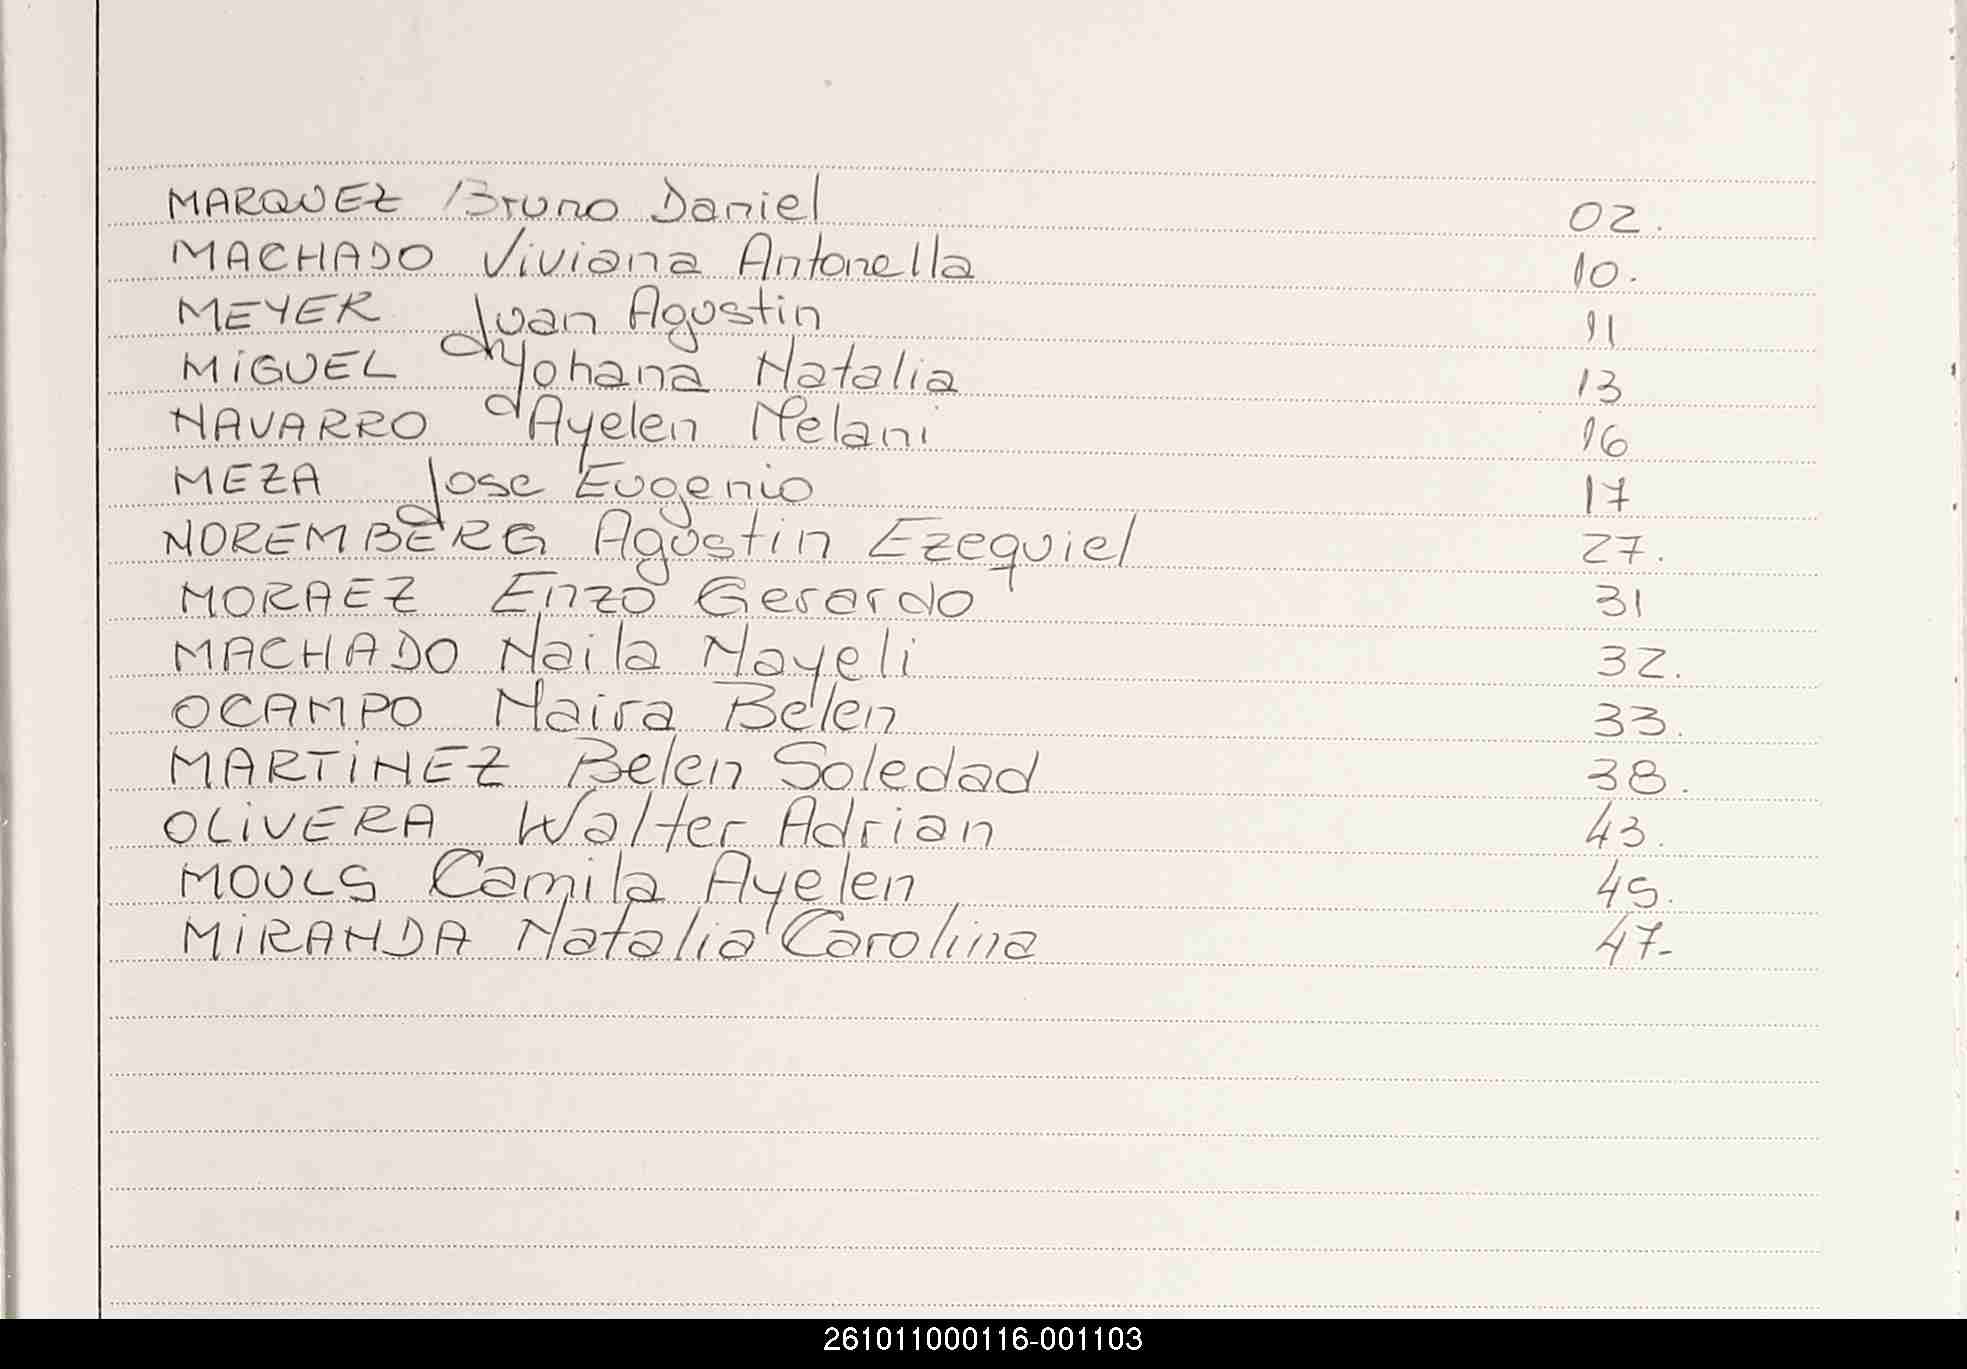 MARQUEZ Bruno Daniel 02.
MACHADO Viviana Antonella 10.
MEYER Juan Agustin 11
MiGUEL Yohana Natalia 13
NAVARRO Ayelen Melani 16
MEZA Jose Eugenio 17
NOREMBERG Agustin Ezequiel 27.
MORAEZ Enzo Gerardo 31
MACHADO Naila Nayeli 32.
OCAMPO Naira Belen 33.
MARTiNEZ Belen Soledad 38.
OLiVERA Walter Adrian 43.
MOULS Camila Ayelen 45.
MiRANDA Natalia Carolina 47-
261011000116-001103